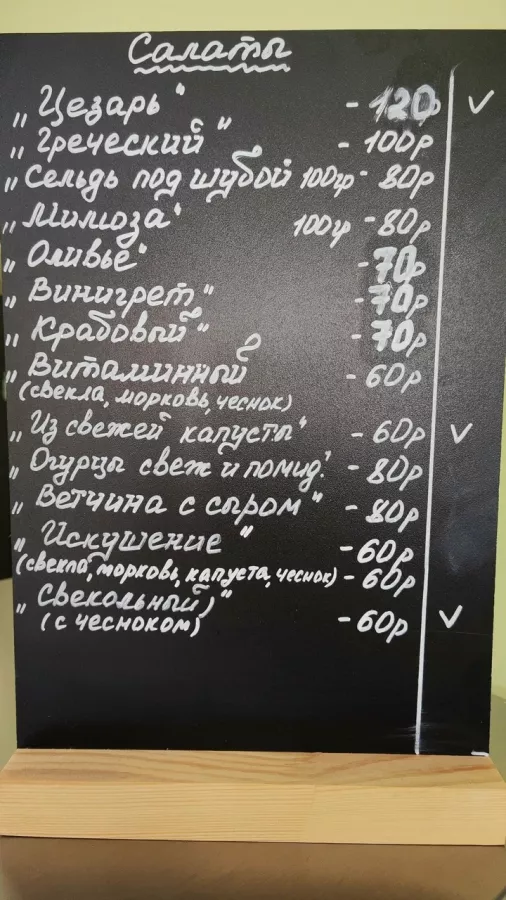 Салаты
„Цезарь" - 120р ✓
„Греческий" - 100р
„Сельдь под шубой 100гр - 80р
„Мимоза" 100гр - 80р
„Оливье" - 70р
„Винигрет" - 70р
„Крабовый" - 70р
„Витаминный - 60р
(свекла, морковь, чеснок)
„Из свежей капусты" - 60р ✓
„Огурцы свеж и помид." - 80р
„Ветчина с сыром" - 80р
„Искушение" - 60р
(свекла, морковь, капуста, чеснок) - 60р
„Свекольный)"
(с чесноком) - 60р ✓